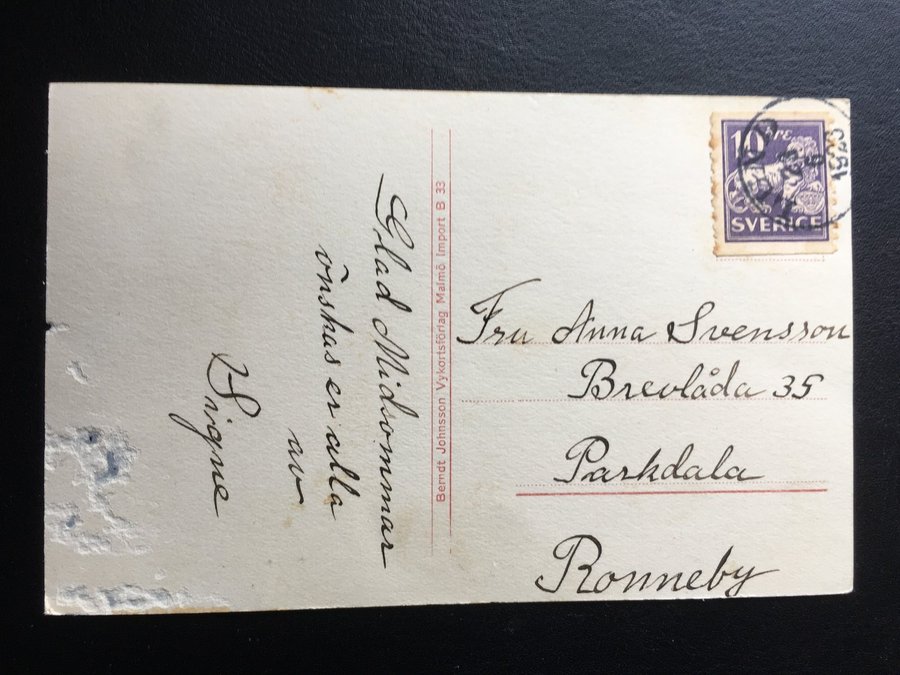 Glad Midsommar
önskas er alla
av
Signe
Berndt Johnsson Vykortsförlag Malmö Import B 33
10 ÖRE
SVERIGE
23
6
Fru Anna Svensson
Brevlåda 35
Parkdala
Ronneby